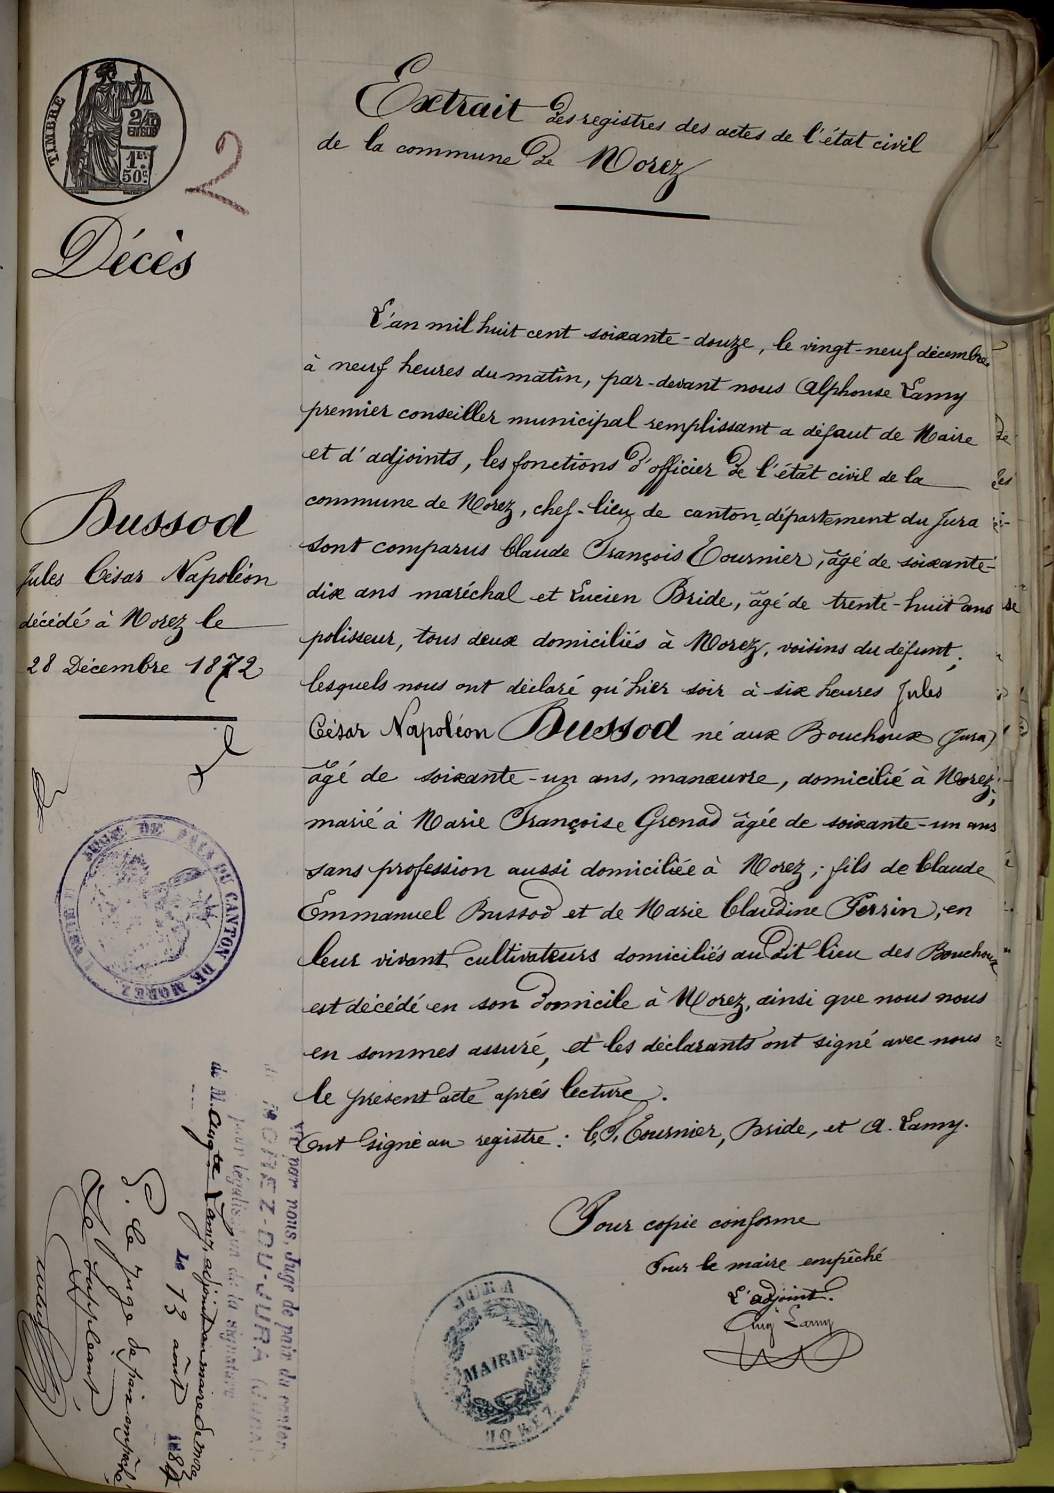 TIMBRE
2/10
EN SUS
1 Fr
50 c
2
Extrait des registres des actes de l'état civil
de la commune de Morez
Décès
Bussod
Jules César Napoléon
décédé à Morez le
28 Décembre 1872
L'an mil huit cent soixante-douze, le vingt-neuf décembre
à neuf heures du matin, par-devant nous Alphonse Lamy
premier conseiller municipal remplissant a défaut de Maire
et d'adjoints, les fonctions d'officier de l'état civil de la
commune de Morez, chef-lieu de canton département du Jura
sont comparus Claude François Tournier, âgé de soixante-
dix ans maréchal et Lucien Bride, âgé de trente-huit ans
polisseur, tous deux domiciliés à Morez, voisins du défunt;
lesquels nous ont déclaré qu'hier soir à six heures Jules
César Napoléon Bussod né aux Bouchoux (Jura)
âgé de soixante-un ans, manœuvre, domicilié à Morez;
marié à Marie Françoise Grenod âgée de soixante-un ans
sans profession aussi domiciliée à Morez; fils de Claude
Emmanuel Bussod et de Marie Claudine Perrin, en
leur vivant cultivateurs domiciliés au dit lieu des Bouchoux
est décédé en son domicile à Morez, ainsi que nous nous
en sommes assuré, et les déclarants ont signé avec nous
le présent acte après lecture.
Ont signé au registre: C. F. Tournier, Bride, et A. Lamy.
Pour copie conforme
Pour le maire empêché
L'adjoint.
Aug Lamy
JURA
MAIRIE
MOREZ
JUGE DE PAIX DU CANTON DE MOREZ
Vu par nous, Juge de paix du canton
de MOREZ-DU-JURA (JURA)
pour légalisation de la signature
de M. Augte Lamy, adjoint au maire de Morez
Le 13 août 188
P. le Juge de paix empêché
Le Suppléant